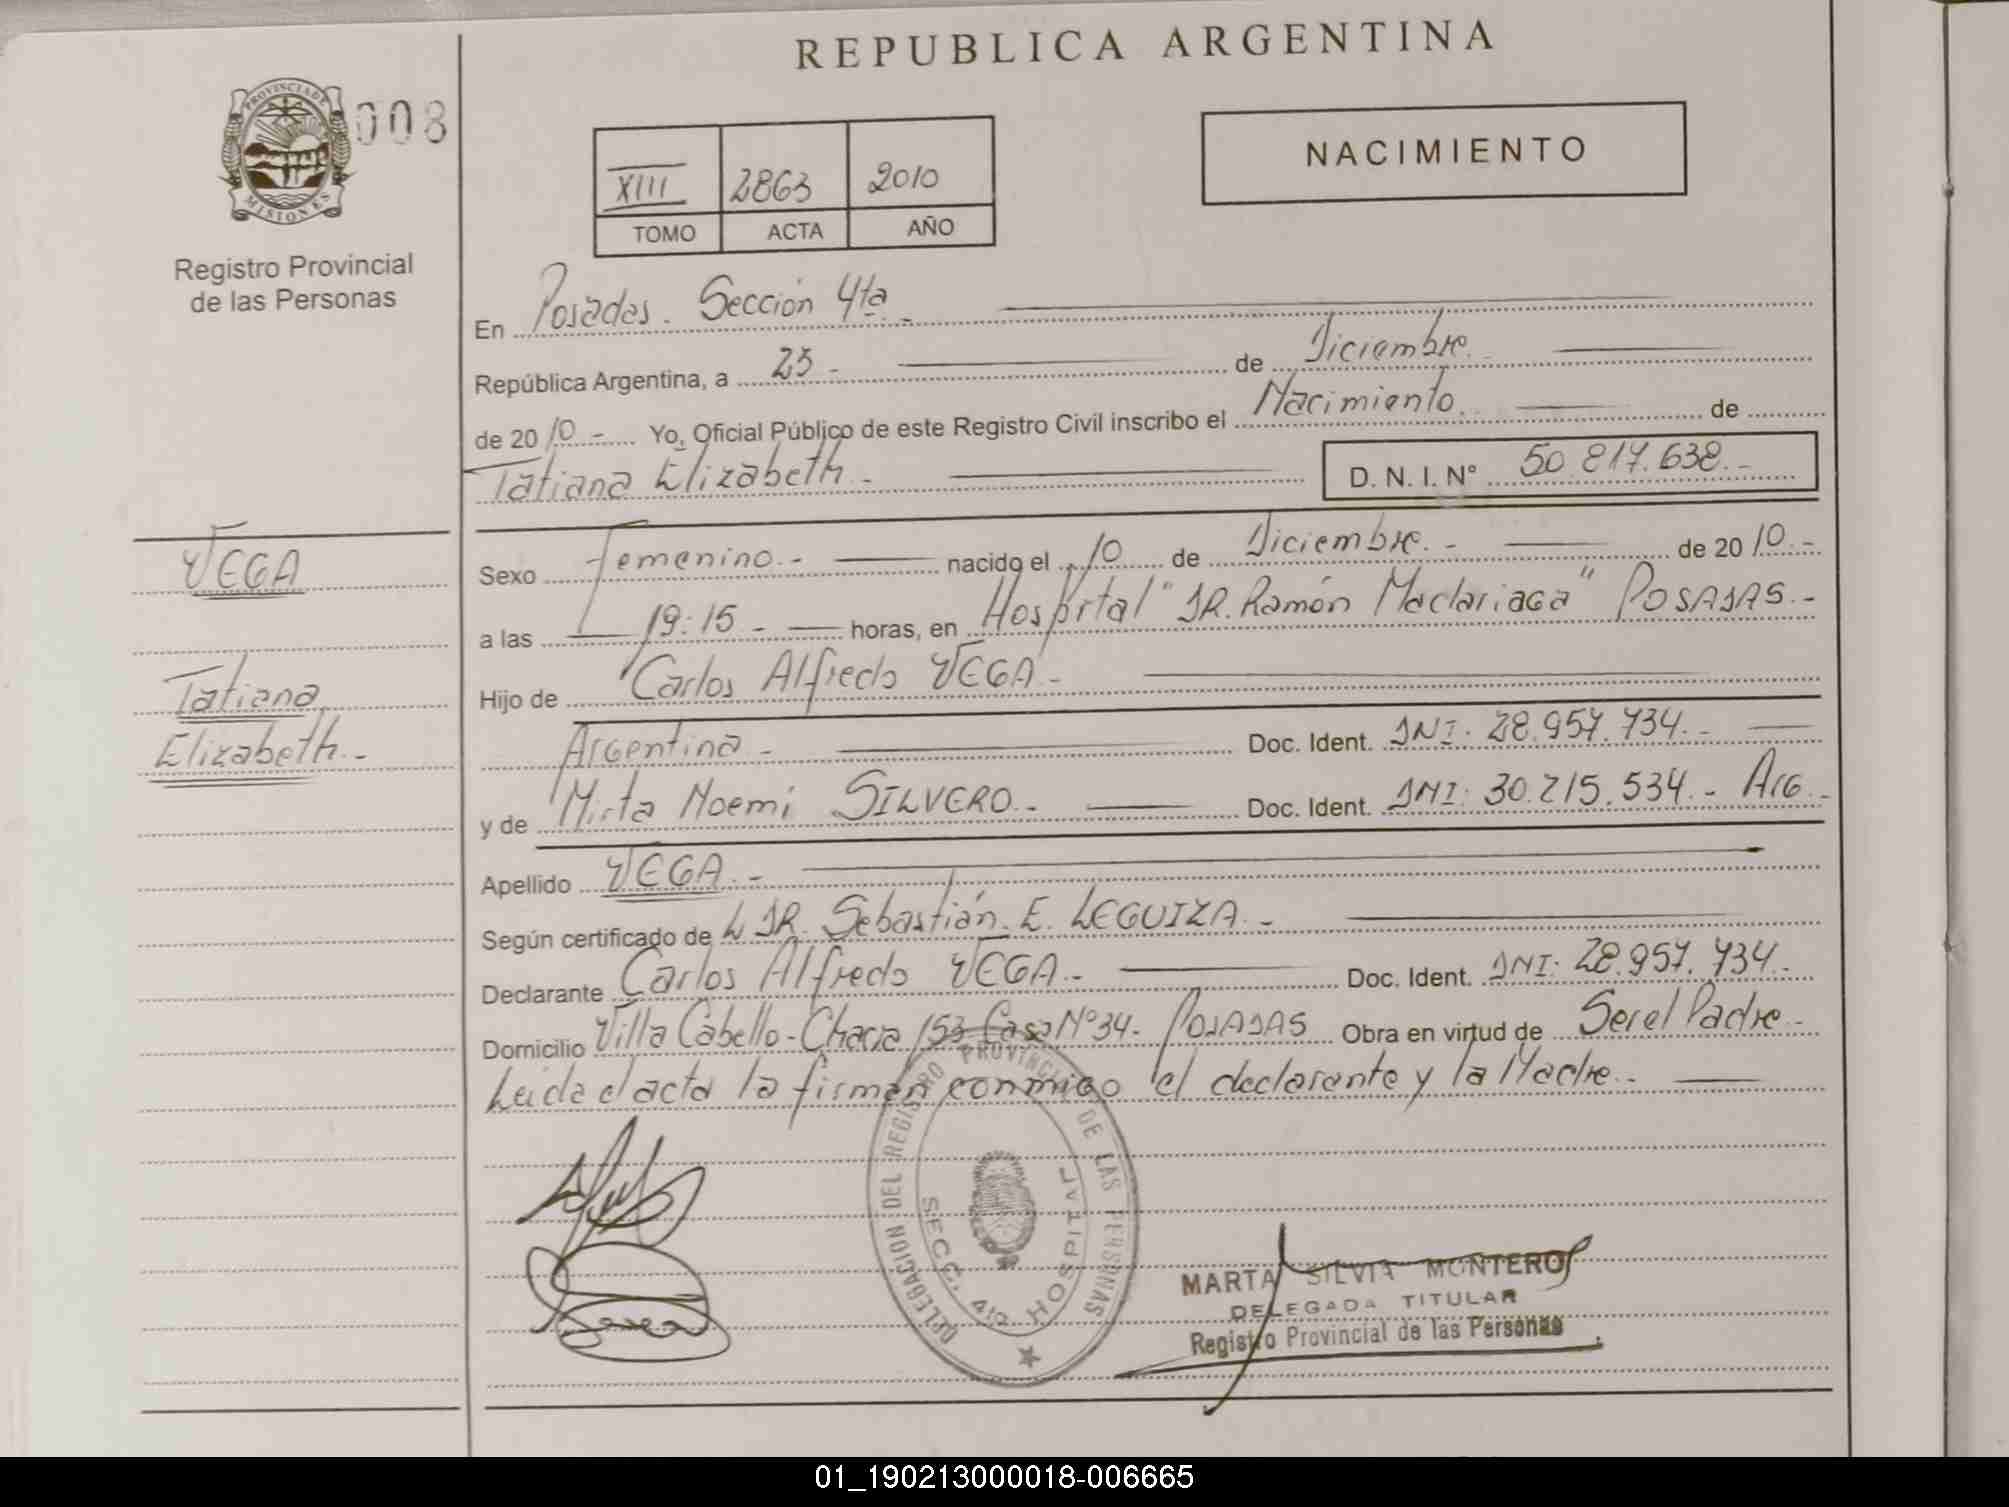 REPUBLICA ARGENTINA
PROVINCIA DE
MISIONES
008
Registro Provincial
de las Personas
XIII 2863 2010
TOMO ACTA AÑO
NACIMIENTO
En Posadas. Sección 4ta. -
República Argentina, a 23 - de Diciembre.
de 2010 - Yo, Oficial Público de este Registro Civil inscribo el Nacimiento. de
Tatiana Elizabeth. - D. N. I. Nº 50.817.638. -
VEGA
Tatiana
Elizabeth. -
Sexo Femenino. - nacido el 10 de Diciembre. - de 2010. -
a las 19:15 - horas, en Hospital "DR. Ramón Madariaga" POSADAS. -
Hijo de Carlos Alfredo VEGA -
Argentina - Doc. Ident. DNI: 28.957.734. -
y de Mirta Noemi SILVERO. - Doc. Ident. DNI: 30.215.534. - Arg. -
Apellido VEGA. -
Según certificado de DR. Sebastián. E. LEGUIZA. -
Declarante Carlos Alfredo VEGA. - Doc. Ident. DNI: 28.957.734. -
Domicilio Villa Cabello - Chacra 153 Casa Nº 34 - POSADAS Obra en virtud de Ser el Padre -
Leida el acta la firman conmigo el declarante y la Madre. -
DELEGACION DEL REGISTRO PROVINCIAL DE LAS PERSONAS
SECC. 4ta HOSPITAL
MARTA SILVIA MONTERO
DELEGADA TITULAR
Registro Provincial de las Personas
01_190213000018-006665